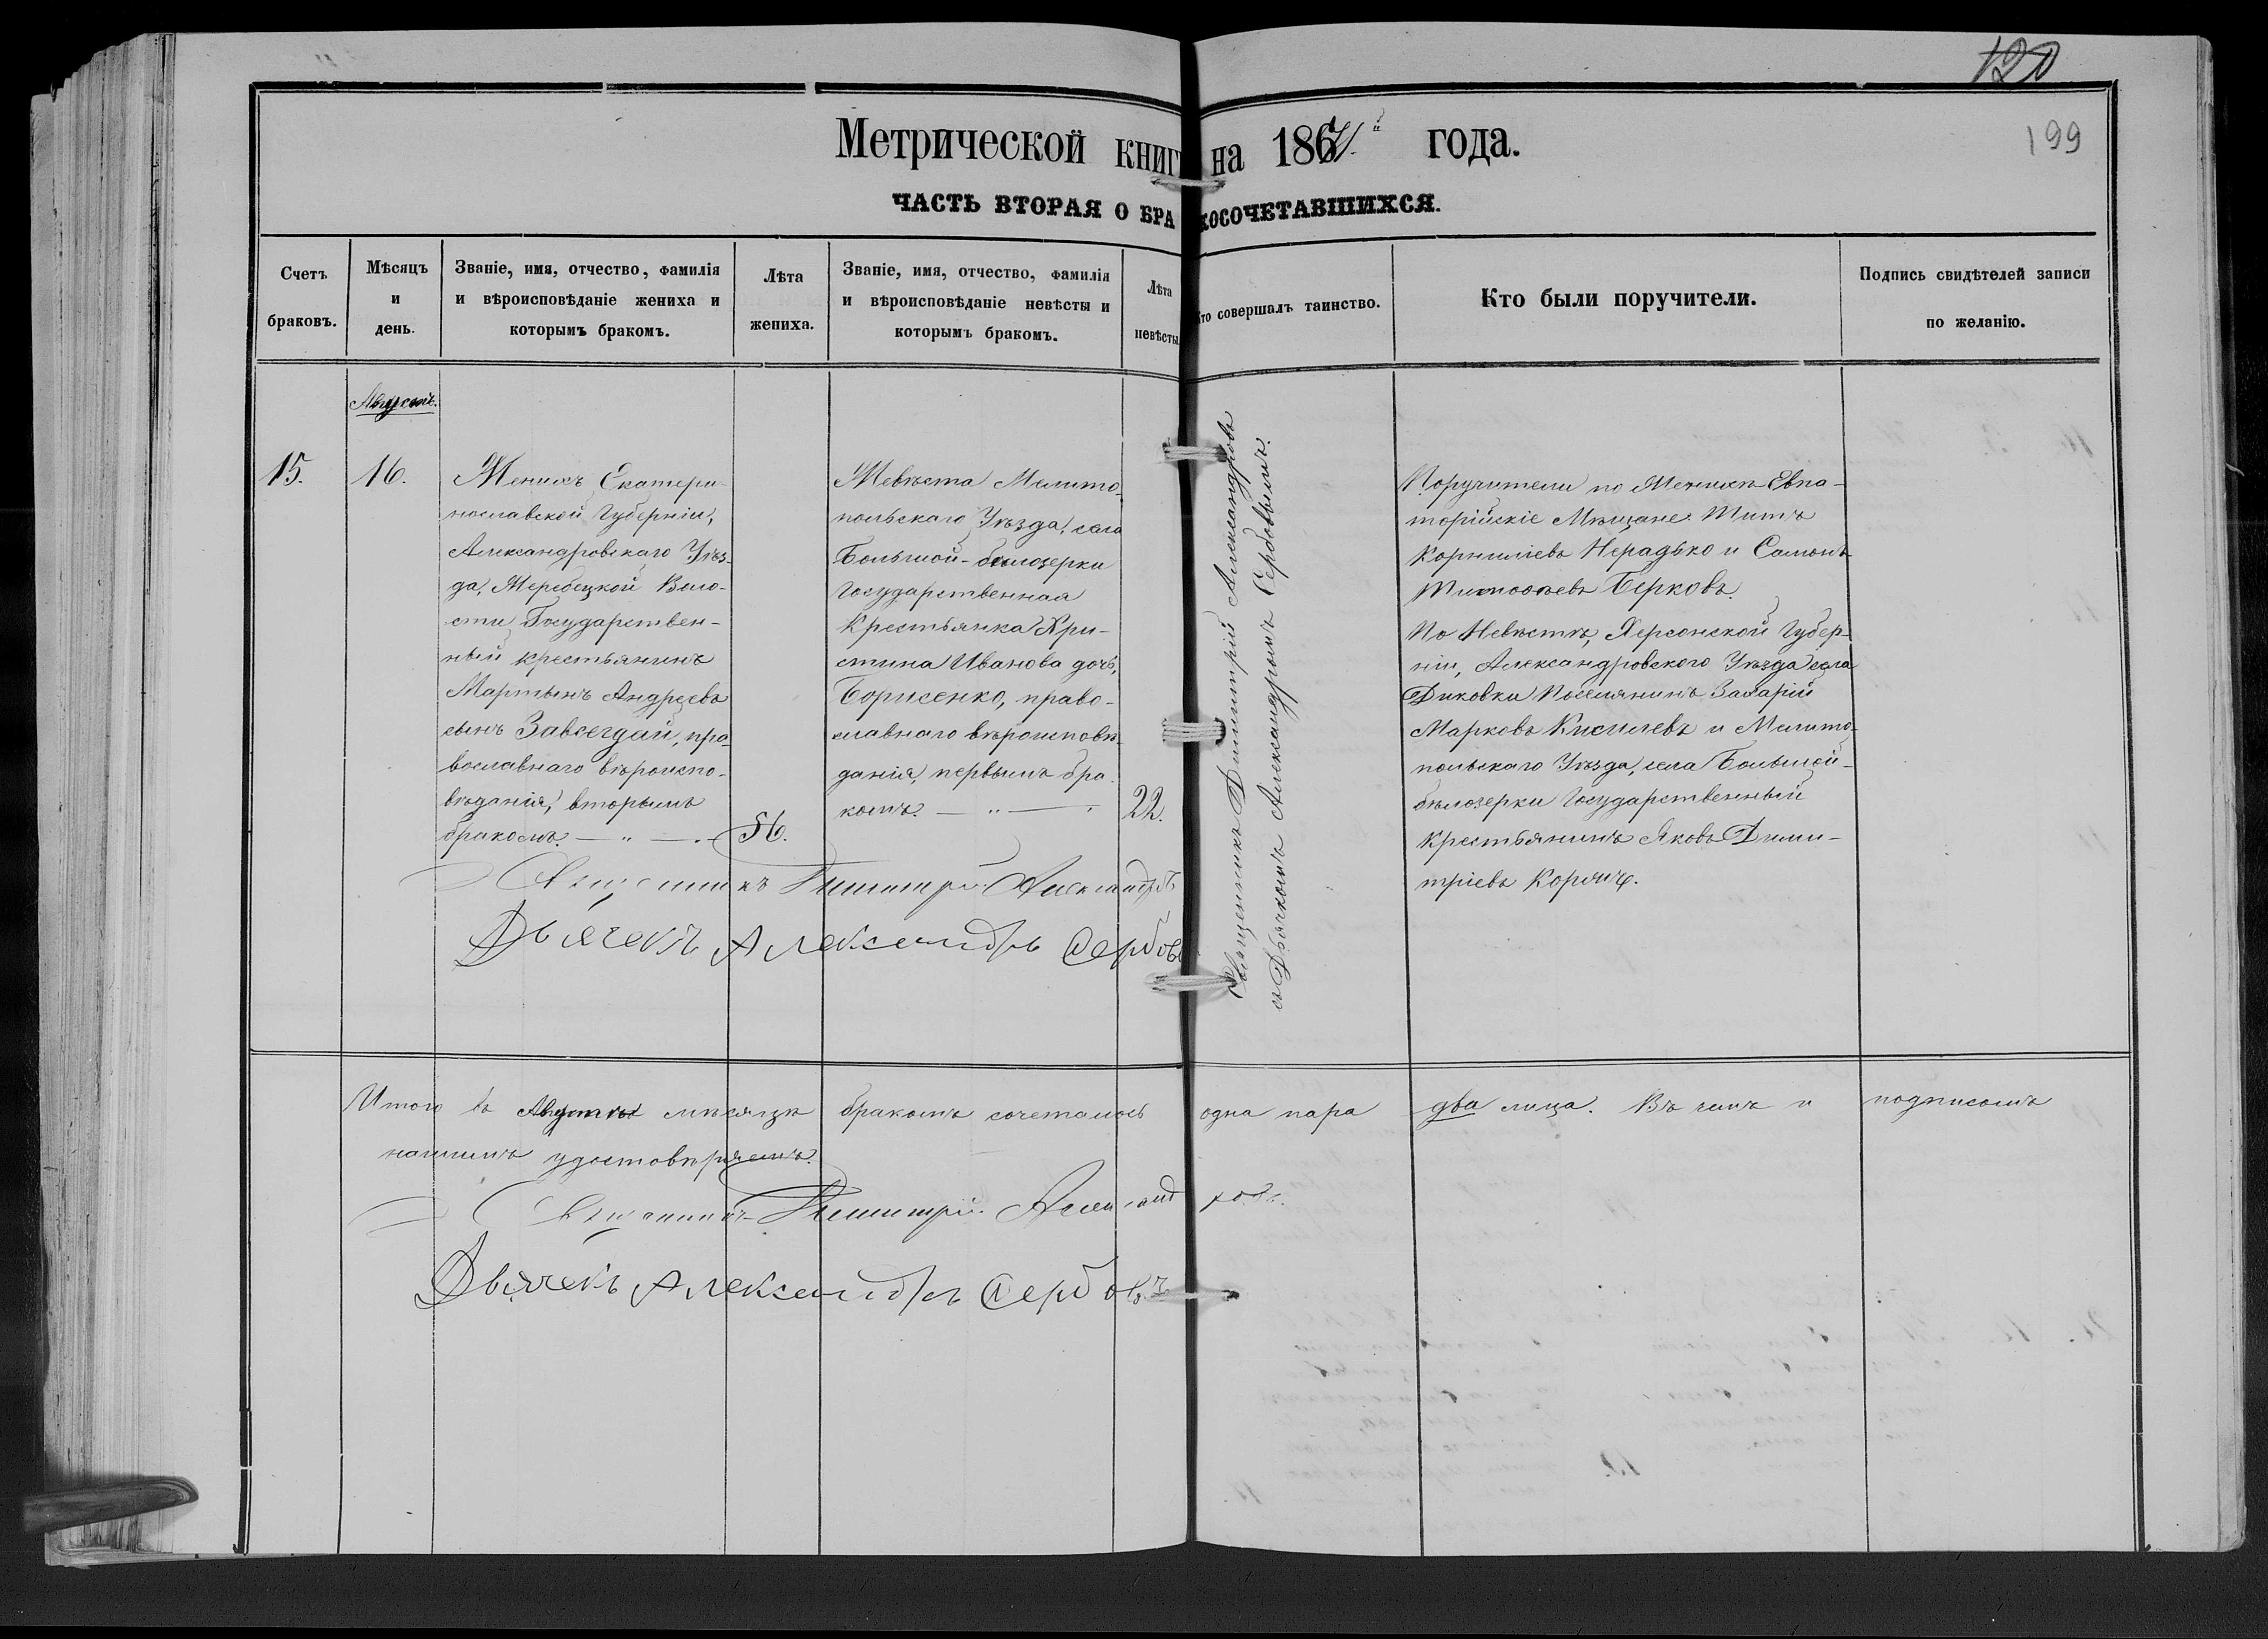 120
199
Метрической книг на 186 года.
ЧАСТЬ ВТОРАЯ О БРАКОСОЧЕТАВШИХСЯ.
Счетъ браковъ.
Мѣсяцъ и день.
Званіе, имя, отчество, фамилія и вѣроисповѣданіе жениха и которымъ бракомъ.
Лѣта жениха.
Званіе, имя, отчество, фамилія и вѣроисповѣданіе невѣсты и которымъ бракомъ.
Лѣта невѣсты
Кто совершалъ таинство.
Кто были поручители.
Подпись свидѣтелей записи по желанію.
Августъ.
15.
16.
Женихъ Екатери-
нославской Губерніи,
Александровскаго Уѣз-
да, Жеребецкой Воло-
сти Государствен-
ный крестьянинъ
Мартынъ Андреевъ
сынъ Завсегдай, пра-
вославнаго вѣроиспо-
вѣданія, вторымъ
бракомъ.
56.
Невѣста Мелито-
польскаго Уѣзда, села
Большой-бѣлозерки
Государственная
Крестьянка Хри-
стина Иванова дочь,
Борисенко, право-
славнаго вѣроисповѣ-
данія, первымъ бра-
комъ.
22.
Священникъ Димитрій Александровъ
съ Дьячкомъ Александромъ Сербовымъ.
Поручители по Женихѣ Евпа-
торійскіе Мѣщане Титъ
Корниліевъ Нерадько и Самонъ
Тимофѣевъ Берковъ.
По Невѣстѣ, Херсонской Губер-
ніи, Александровского Уѣзда села
Диковки Поселянинъ Захарій
Марковъ Кисилевъ и Мелито-
польскаго Уѣзда, села Большой-
бѣлозерки Государственный
Крестьянинъ Яковъ Дими-
тріевъ Корячъ.
Священникъ Димитрій Александровъ
Дьячекъ Александръ Сербовъ
Итого въ Августѣ мѣсяцѣ бракомъ сочеталось одна пара два лица. Въ чемъ и подписомъ
нашимъ удостовѣряемъ.
Священникъ Димитрій Александровъ.
Дьячекъ Александръ Сербовъ